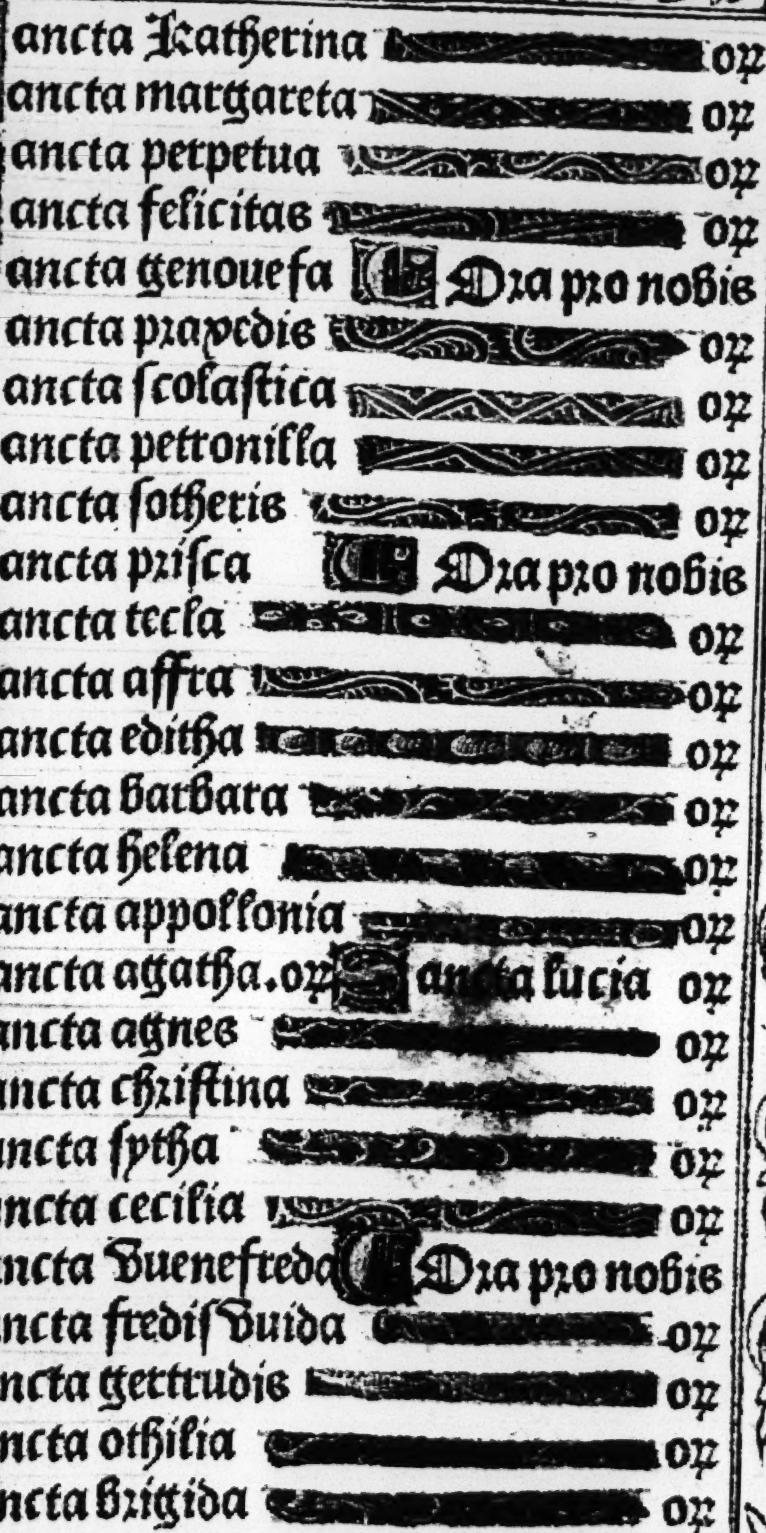 ancta Katherina oꝛ
ancta margareta oꝛ
ancta perpetua oꝛ
ancta felicitas oꝛ
ancta genouefa Oꝛa pꝛo nobis
ancta pꝛaxedis oꝛ
ancta ſcolaſtica oꝛ
ancta petronilla oꝛ
ancta ſotheris oꝛ
ancta pꝛiſca Oꝛa pꝛo nobis
ancta tecla oꝛ
ancta affra oꝛ
ancta editha oꝛ
ancta barbara oꝛ
ancta helena oꝛ
ancta appollonia oꝛ
ancta agatha. oꝛ Sancta lucia oꝛ
ancta agnes oꝛ
ancta chꝛiſtina oꝛ
ncta ſytha oꝛ
ncta cecilia oꝛ
ncta vuenefreda Oꝛa pꝛo nobis
ncta frediſvuida oꝛ
ncta gertrudis oꝛ
ncta othilia oꝛ
ncta bꝛigida oꝛ